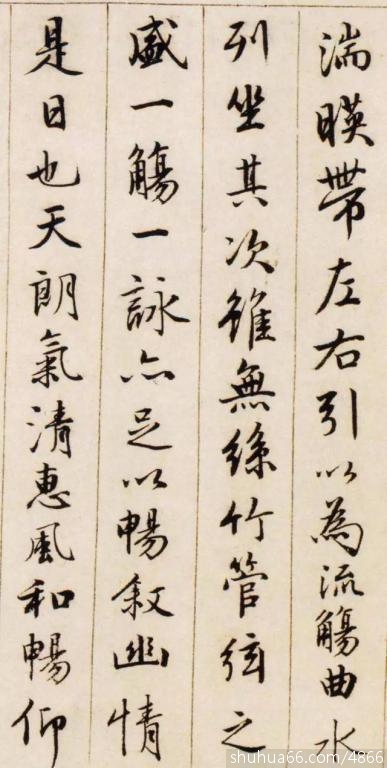 湍暎帶左右引以為流觴曲水
列坐其次雖無絲竹管弦之
盛一觴一詠亦足以暢敘幽情
是日也天朗氣清惠風和暢仰
shuhua66.com/4866